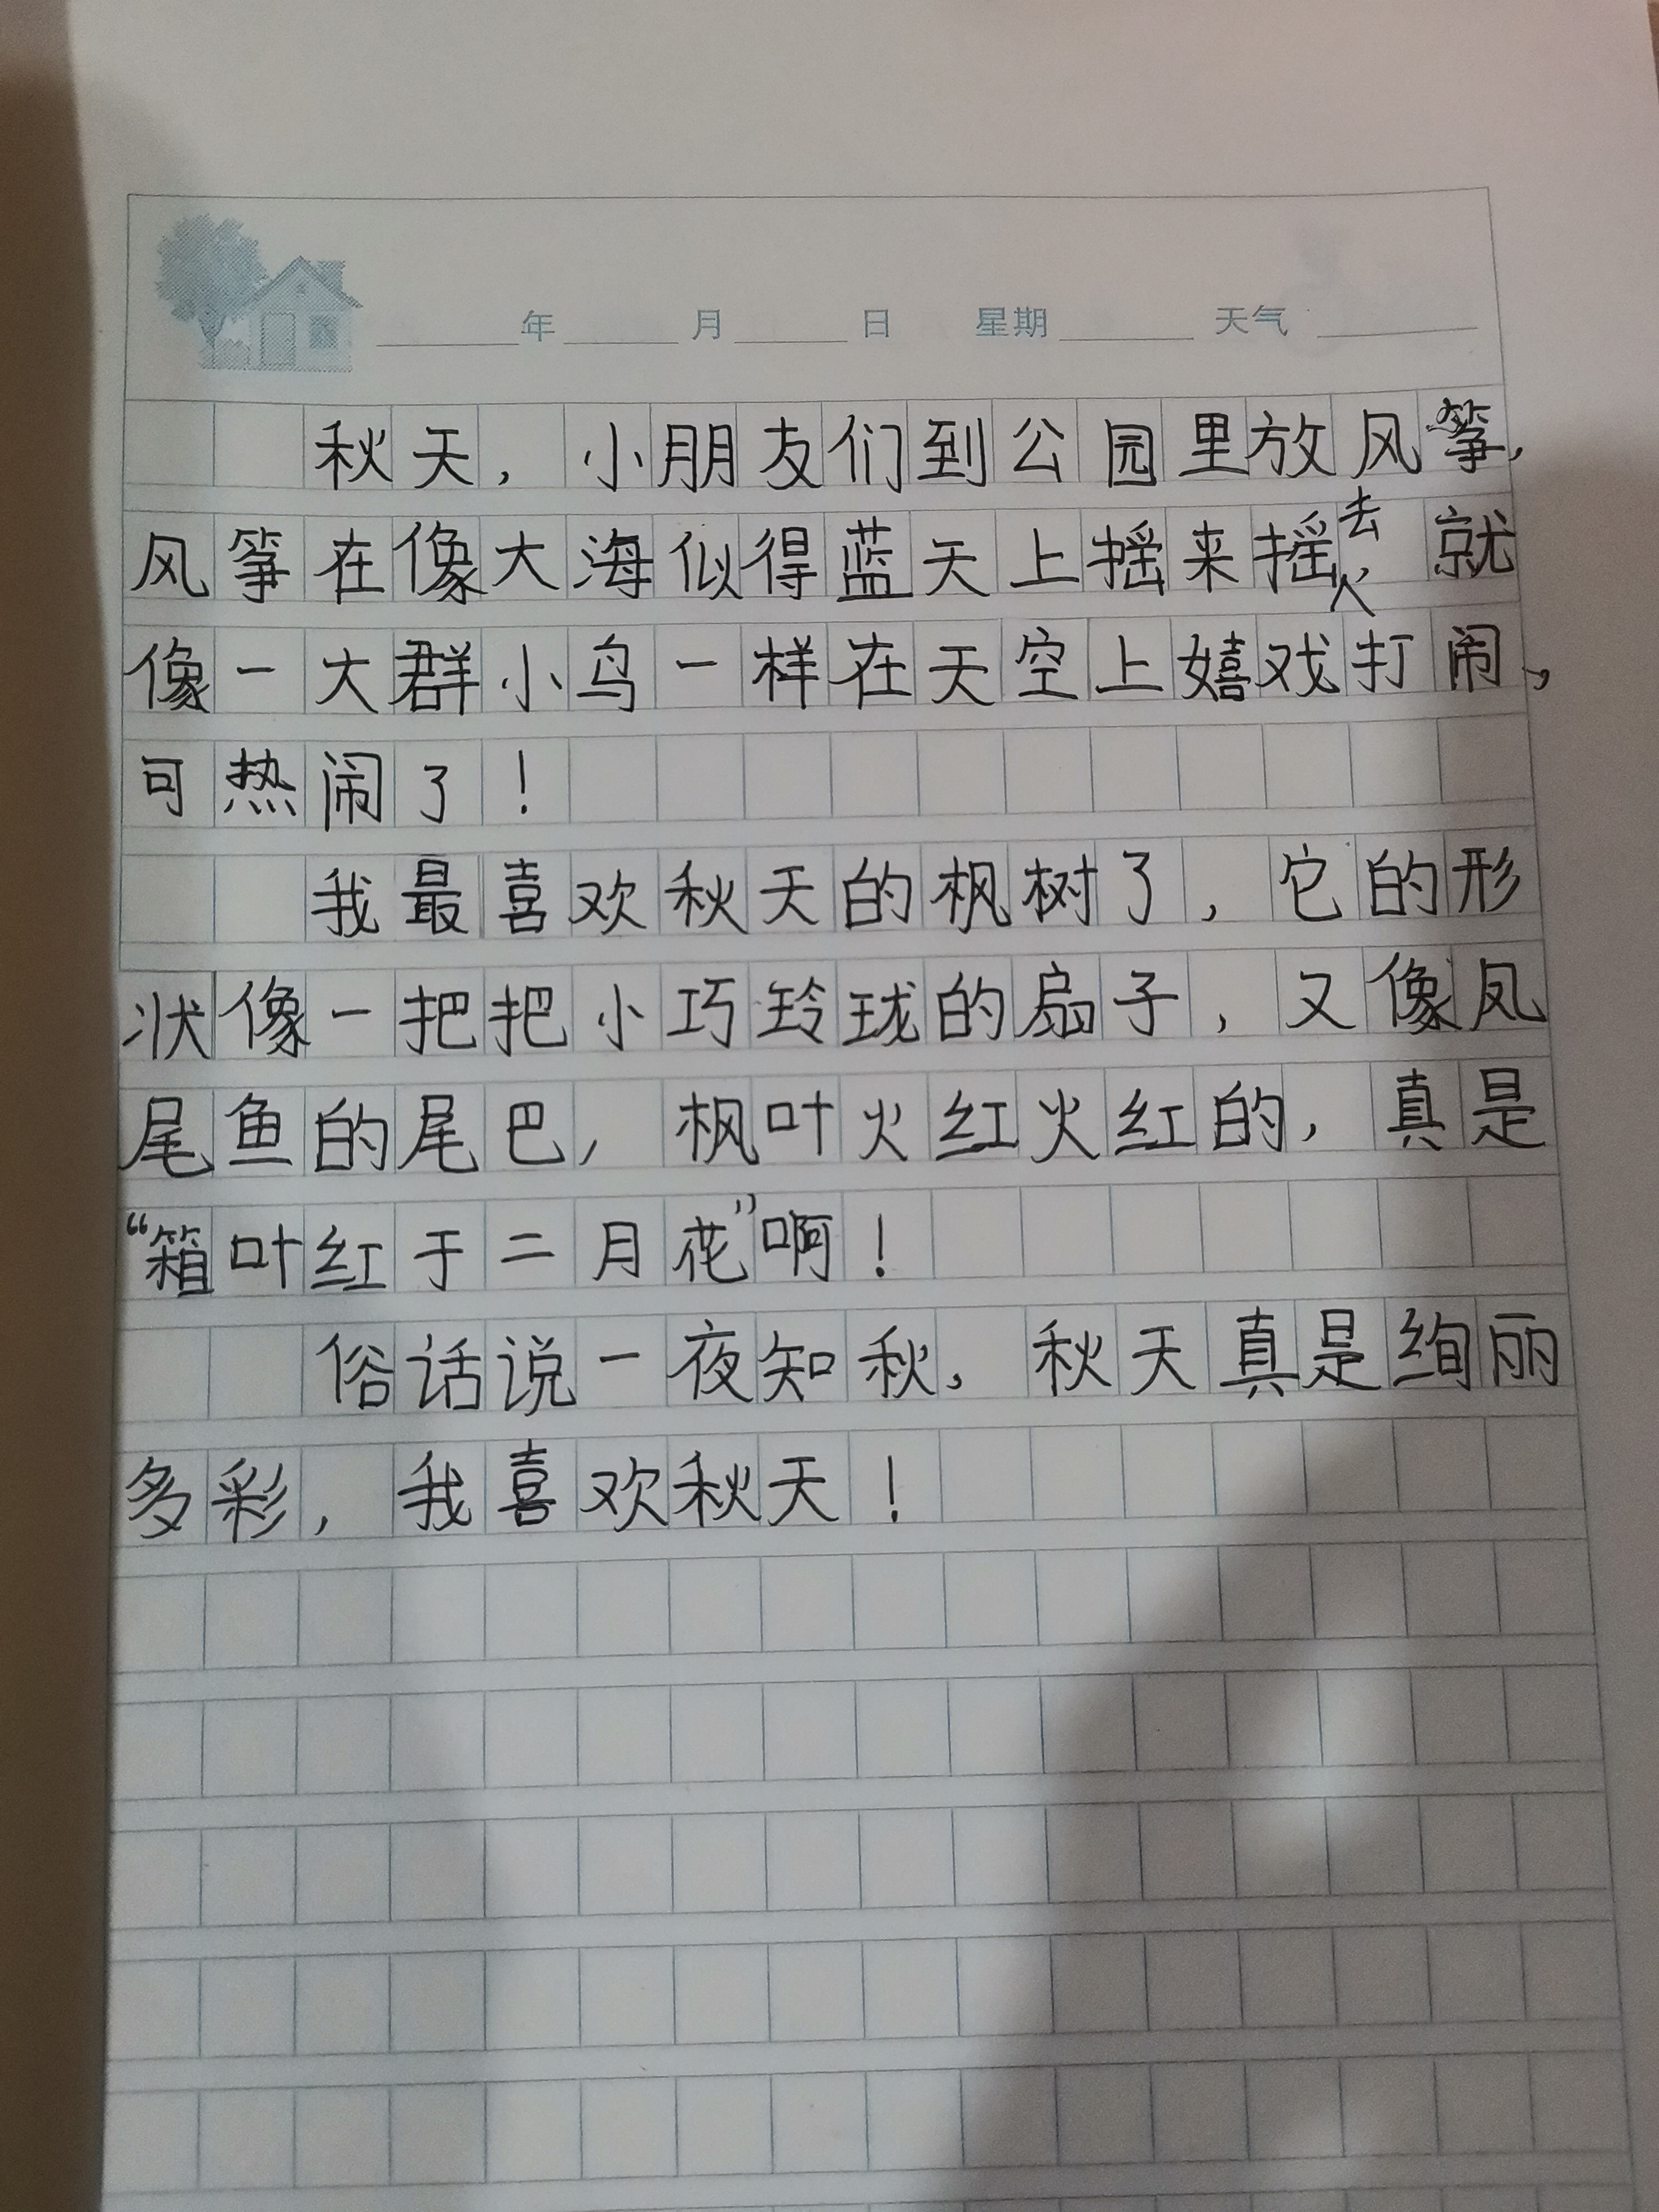 年 月 日 星期 天气
秋天，小朋友们到公园里放风筝，
风筝在像大海似得蓝天上摇来摇去，就
像一大群小鸟一样在天空上嬉戏打闹，
可热闹了！
我最喜欢秋天的枫树了，它的形
状像一把把小巧玲珑的扇子，又像凤
尾鱼的尾巴，枫叶火红火红的，真是
“箱叶红于二月花”啊！
俗话说一夜知秋，秋天真是绚丽
多彩，我喜欢秋天！